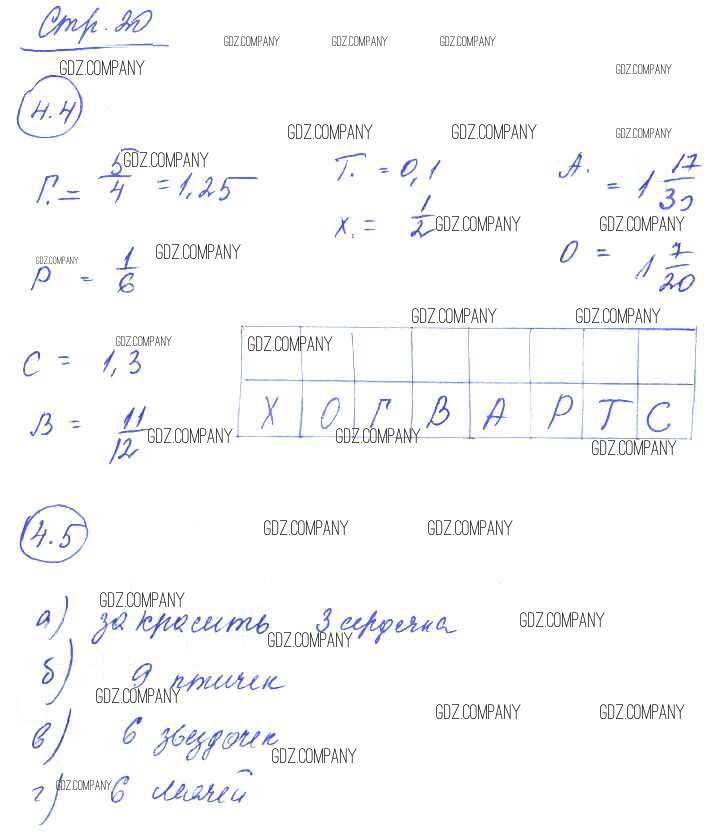 Стр. 20
GDZ.COMPANY GDZ.COMPANY GDZ.COMPANY
GDZ.COMPANY GDZ.COMPANY
4.4
GDZ.COMPANY GDZ.COMPANY GDZ.COMPANY
GDZ.COMPANY
Г. = 5/4 = 1,25 Т. = 0,1 А. = 1 17/30
Х. = 1/2 GDZ.COMPANY GDZ.COMPANY
GDZ.COMPANY GDZ.COMPANY
Р = 1/6 О = 1 7/20
GDZ.COMPANY GDZ.COMPANY
GDZ.COMPANY GDZ.COMPANY
С = 1,3
Х О Г В А Р Т С
В = 11/12 GDZ.COMPANY GDZ.COMPANY
GDZ.COMPANY
4.5 GDZ.COMPANY GDZ.COMPANY
GDZ.COMPANY
а) закрасить 3 сердечка GDZ.COMPANY
GDZ.COMPANY
б) 9 птичек
GDZ.COMPANY
GDZ.COMPANY GDZ.COMPANY
в) 6 звездочек
GDZ.COMPANY
GDZ.COMPANY
г) 6 мячей